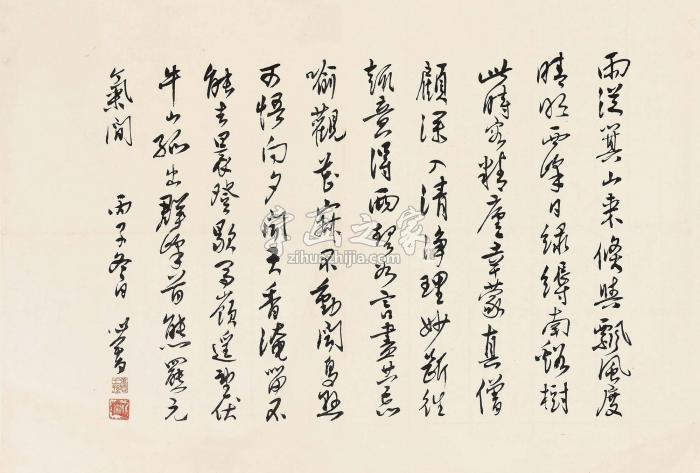 雨從箕山來倏與飄風度
晴明西峰日綠縟南谿樹
此時客精廬幸蒙真僧
顧深入清淨理妙斷往
趣意得兩契如言盡共忘
喻觀花寂不動聞鳥懸
可悟向夕聞天香淹留不
能去晨登歇馬嶺遙望伏
牛山孤出群峰首熊羆元
氣間 丙子冬日 心畬
字画之家
zihuazhijia.com